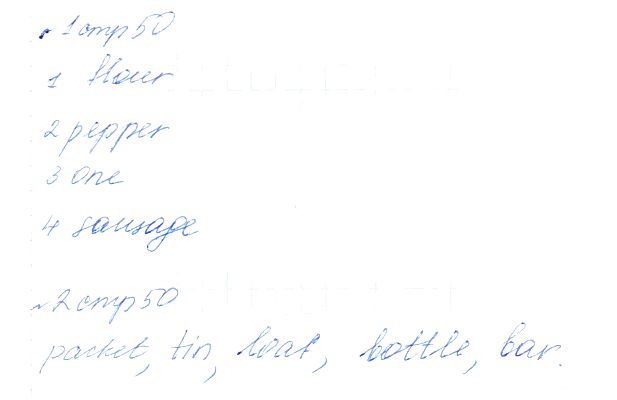 №1 стр50
1 flour
2 pepper
3 one
4 sausage
№2 стр50
packet, tin, loaf, bottle, bar.